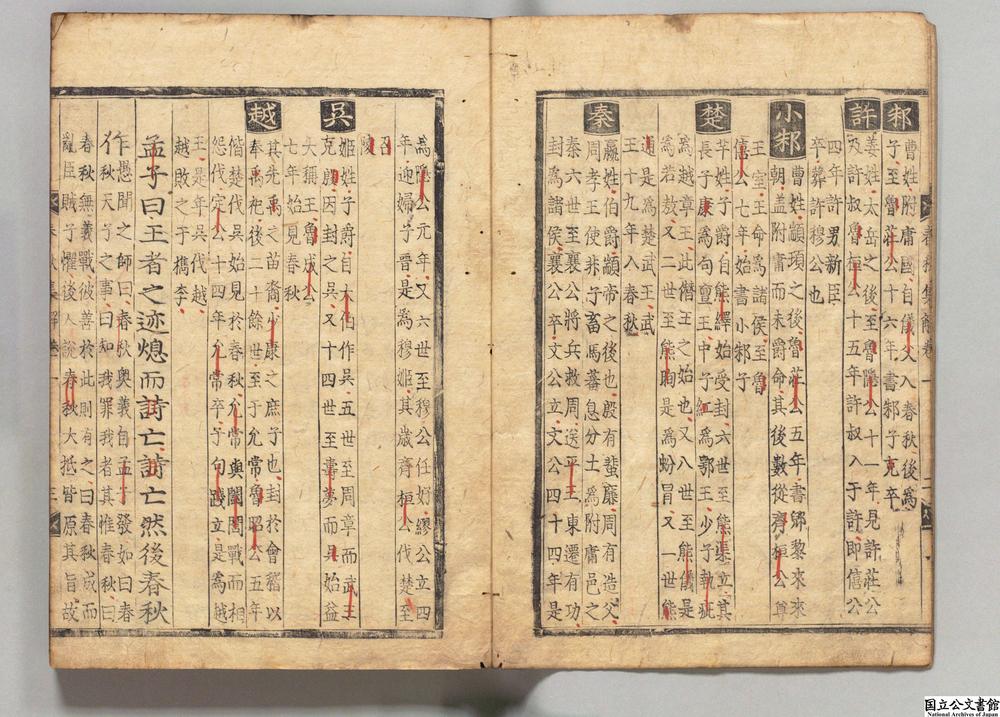 邾
曹姓附庸國自儀父入春秋後爲
子至魯莊公十六年書邾子克卒
許
姜姓太岳之後至魯隱公十一年見許莊公
及許叔魯桓公十五年許叔入于許即僖公
四年許男新臣
卒葬許穆公也
小邾
曹姓顓頊之後魯莊公五年書郳黎來來
朝盖附庸而未爵命其後數從齊桓公尊
王室王命爲諸侯至魯
僖公七年始書小邾子
楚
芈姓子爵自熊繹始受封六世至熊渠立其
長子康爲句亶王中子紅爲鄂王少子執疵
爲越章王此僭王之始也又八世至熊儀是
爲若敖又二世至熊眴是爲蚡冒又一世熊
通是爲楚武王武
王十九年入春秋
秦
嬴姓伯爵顓帝之後也殷有蜚廉周有造父
周孝王使非子畜馬蕃息分土爲附庸邑之
秦六世至襄公將兵救周送平王東遷有功
封爲諸侯襄公卒文公立文公四十四年是
爲隱公元年又六世至穆公任好繆公立四
年迎婦于晉是爲穆姬其歲齊桓公伐楚至
召
陵
吳
姬姓子爵自太伯作吳五世至周章而武王
克殷因封之吳又十四世至壽夢而吳始益
大稱王魯成公
七年始見春秋
越
其先禹之苗裔少康之庶子也封於會稽以
奉禹祀後二十餘世至于允常魯昭公五年
偕楚伐吳始見於春秋允常與闔閭戰而相
怨伐定公十四年允常卒子句踐立是爲越
王是年吳伐越
越敗之于檇李
孟子曰王者之迹熄而詩亡詩亡然後春秋
作愚聞之師曰春秋奧義自孟子發如曰春
作春秋天子之事曰知我罪我者其惟春秋曰
春秋無義戰彼善於此則有之曰春秋成而
亂臣賊子懼後人說春秋大抵皆原其旨故
春秋集解卷一
二
春秋集解卷一
三
国立公文書館
National Archives of Japan